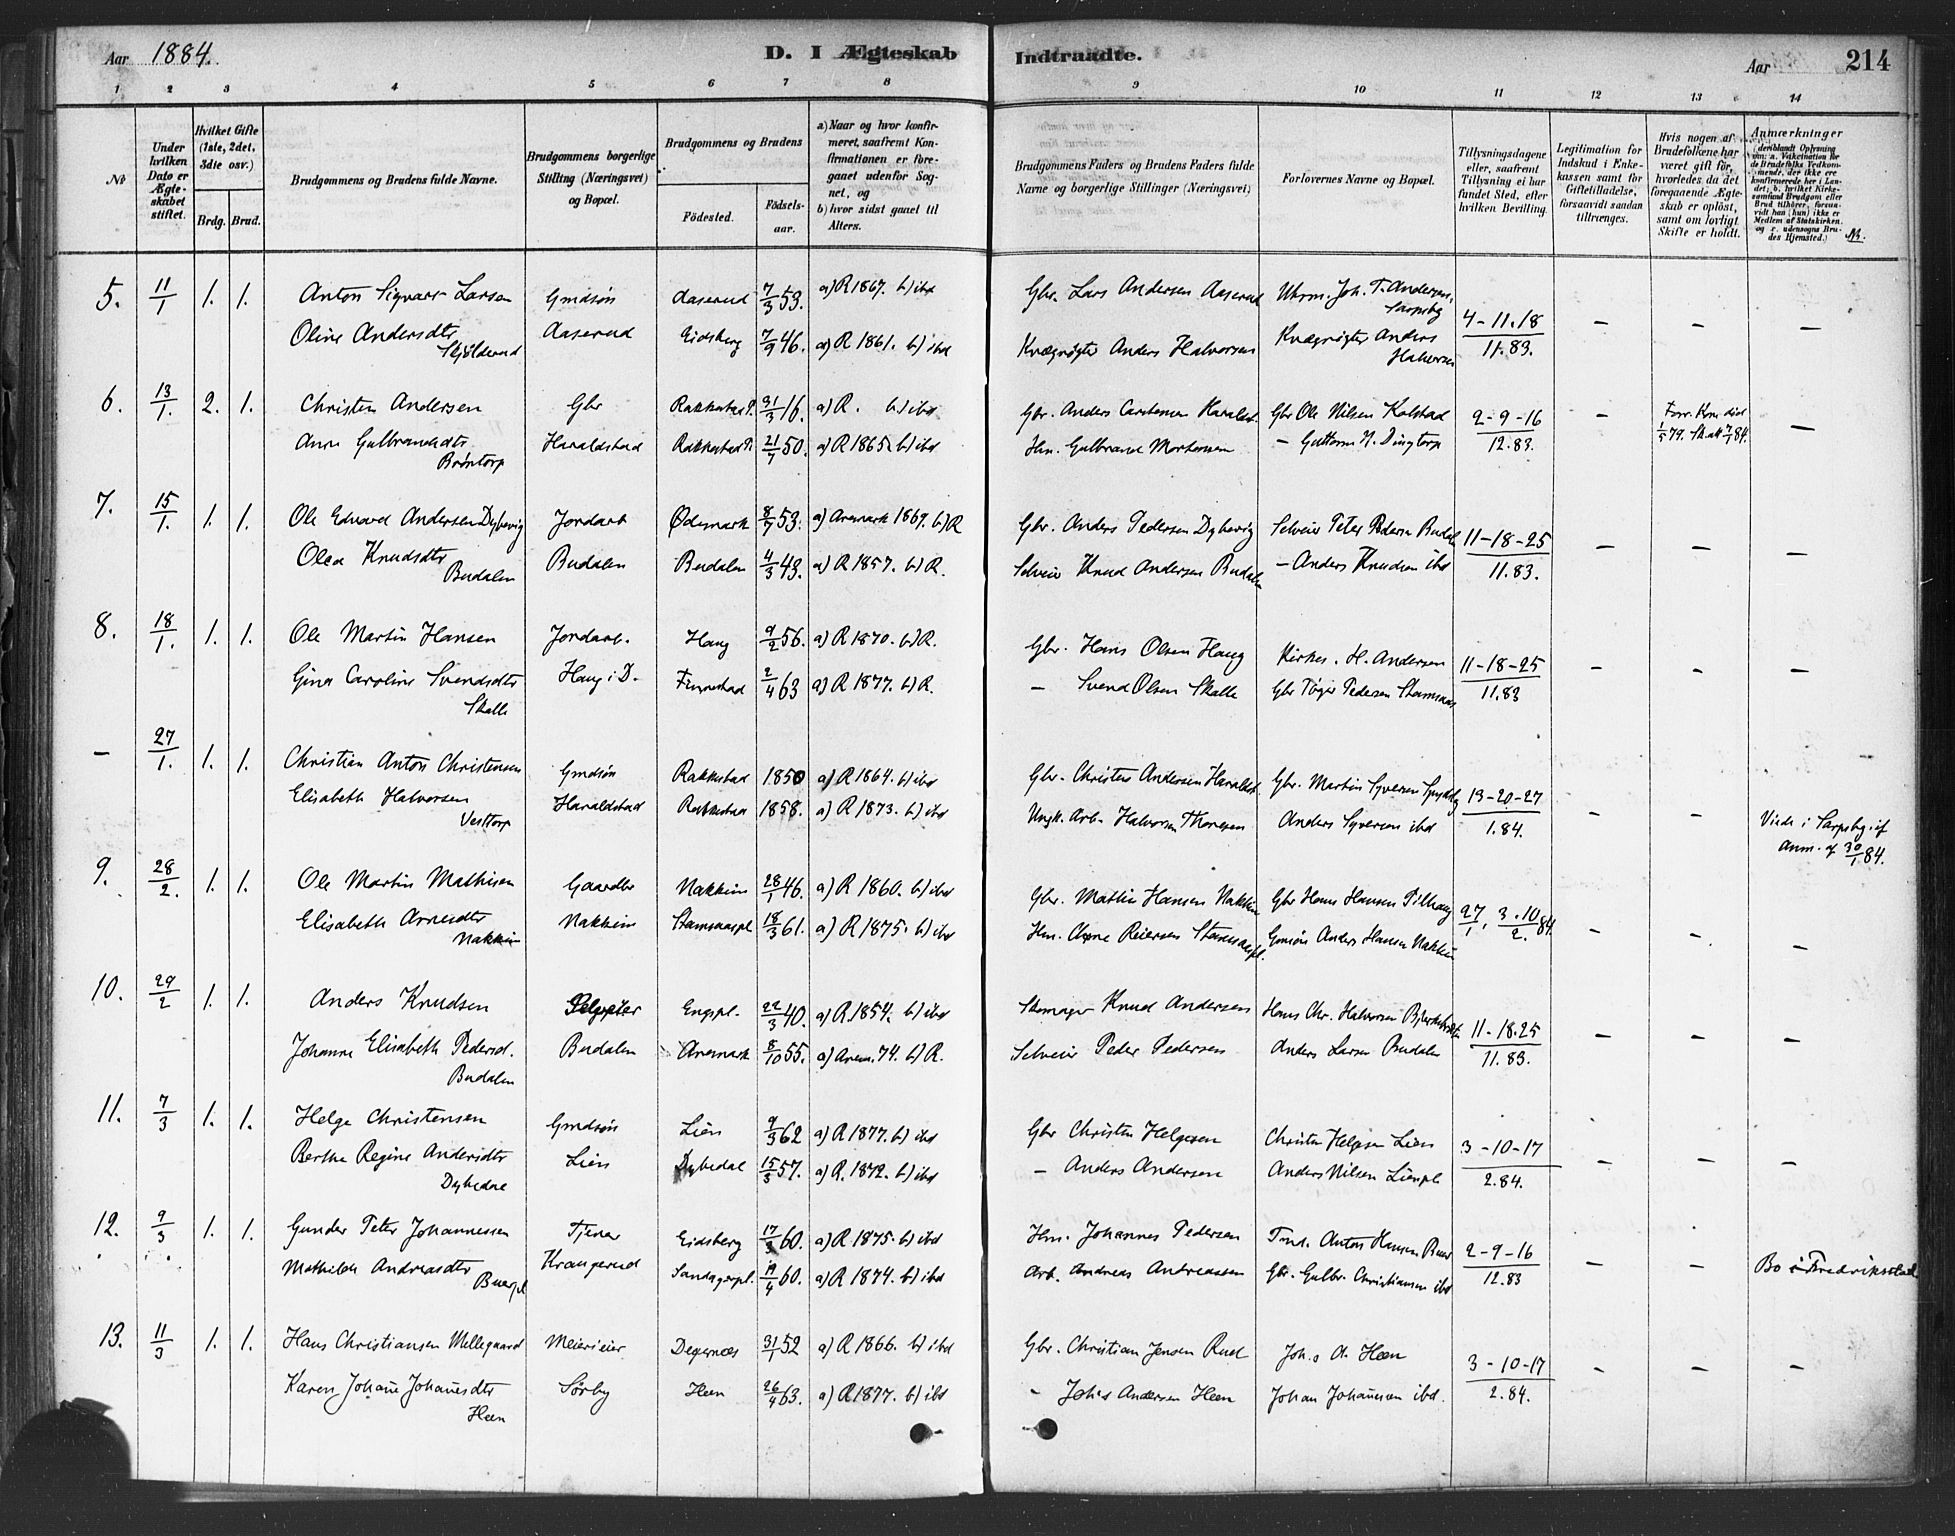 Aar 1884. D. I Ægteskab Indtraadte. Aar 214
1 2 3 4 5 6 7 8 9 10 11 12 13 14
No
Under hvilken Dato er Ægteskabet stiftet.
Hvilket Gifte (1ste, 2det, 3die osv.)
Brdg. Brud.
Brudgommens og Brudens fulde Navne.
Brudgommens borgerlige Stilling (Næringsvei) og Bopæl.
Brudgommens og Brudens
Fødested. Fødselsaar.
a) Naar og hvor konfirmeret, saafremt Konfirmationen er foregaaet udenfor Sognet, og
b) hvor sidst gaaet til Alters.
Brudgommens Faders og Brudens Faders fulde Navne og borgerlige Stillinger (Næringsvei)
Forlovernes Navne og Bopæl.
Tillysningsdagene eller, saafremt Tillysning ei har fundet Sted, efter hvilken Bevilling.
Legitimation for Indskud i Enkekassen samt for Giftetilladelse, forsaavidt saadan tiltrænges.
Hvis nogen af Brudefolkene har været gift før, hvorledes da det foregaaende Ægteskab er opløst, samt om lovligt Skifte er holdt.
Anmærkninger (deriblandt Oplysning om: a. Vakcination for de Brudefolks Vedkommende, der ikke ere konfirmerede her i Landet, b. hvilket Kirkesamfund Brudgom eller Brud tilhører, forsaavidt han (hun) ikke er Medlem af Statskirken, og c. udensogns Brudes Hjemsted.)
5. 11/1 1. 1. Anton Sigvart Larsen Gmdsøn Aaserud 7/3 53. a) R 1867. b) ibd Gbr. Lars Andersen Aaserud Uhrm. Joh. T. Andersen, Sarpsbg 4-11.18 – – –
Oline Andersdtr Skjölderud Aaserud Eidsberg 7/9 46. a) R 1861. b) ibd Kvægrøgter Anders Halvorsen Kvægrøgter Anders Halvorsen 11.83.
6. 13/1. 2. 1. Christen Andersen Gbr Rakkestad P. 31/3 16. a) R. b) ibd Gbr. Anders Carstensen Haraldst. Gbr Ole Nilsen Kolstad 2-9-16 – Forr. Kone död –
Anne Gulbrandsdtr Bröntorp Haraldstad Rakkestad P. 21/7 50. a) R 1865. b) ibd Hm. Gulbrand Mortensen – Guttorm N. Dingtorp 12.83. 1/5 79. Sk. att 7/1 84.
7. 15/1. 1. 1. Ole Edvard Andersen Dybevig Jordarb Ødemark 8/7 53. a) Aremark 1869. b) R Gbr. Anders Pedersen Dybevig Selveier Peter Pedersen Budalen 11-18-25 – – –
Olea Knudsdtr Budalen Budalen Budalen 4/3 43. a) R 1857. b) R. Selveier Knud Andersen Budalen – Anders Knudsen ibd 11.83.
8. 18/1. 1. 1. Ole Martin Hansen Jordarb. Haug 9/2 56. a) R 1870. b) R. Gbr. Hans Olsen Haug Kirkes. H. Andersen 11-18-25 – – –
Gina Caroline Svendsdtr Skalle Haug i D. Finnestad 2/4 63 a) R 1877. b) R. – Svend Olsen Skalle Gbr Töger Pedersen Stamsaas 11.83
– 27/1. 1. 1. Christian Anton Christensen Gmdsøn Rakkestad 1850 a) R 1864. b) ibd Gbr. Christen Andersen Haraldst. Gbr. Martin Syversen 13-20-27 – –
Elisabeth Halvorsen Vesttorp Haraldstad Rakkestad 1858. a) R 1873. b) ibd Ungk. Arb. Halvorsen Thoresen Anders Syversen ibd 1.84. Viede i Sarpsbg. if anm. af 30/1 84.
9. 28/2. 1. 1. Ole Martin Mathisen Gaardbr Nakkim 28/1 46. a) R 1860. b) ibd Gbr. Mathis Hansen Nakkim Gbr Hans Hansen Tilhaug 27/1, 3.10/2. 84. – – –
Elisabeth Arnesdtr Nakkim Nakkim Stamsaaspl 18/3 61. a) R 1875. b) ibd Hm. Arne Reiersen Stamsaaspl. Gmsøn Anders Hansen Nakkim
10. 29/2 1. 1. Anders Knudsen Selveier Engspl. 22/3 40. a) R.1854. b) ibd Skomager Knud Andersen Hans Chr. Halvorsen 11-18.25 – – –
Johanne Elisabeth Pedersd. Budalen Budalen Aremark 8/10 55. a) Arem. 74. b) R. Selveier Peder Pedersen Anders Larsen Budalen 11.83.
11. 7/3 1. 1. Helge Christensen Gmdsøn Lien 9/3 62 a) R 1877. b) ibd Gbr Christen Helgesen Christen Helgesen Lien 3-10-17 – – –
Berthe Regine Andersdtr Dybedal Lien Dybedal 15/3 57. a) R. 1872. b) ibd – Anders Andersen Anders Nilsen Lienpl 2.84.
12. 9/3 1. 1. Gunder Peter Johannessen Tjener Eidsberg 17/3 60. a) R 1875. b) ibd Hm. Johannes Pedersen Tmd. Anton Hansen Buer 2-9-16 – – Bo i Fredriksstad
Mathilde Andreasdtr Buerpl Krangerud Sandagerpl. 19/4 60. a) R 1874. b) ibd Arb. Andreas Andreassen Gbr. Gulbr. Christiansen ibd 12.83
13. 11/3 1. 1. Hans Christiansen Mellegaard Meierieier Degernæs 31/1 52 a) R 1866. b) ibd Gbr. Christian Jensen Rud Joh.s A. Heen 3-10-17 – – –
Karen Johane Johanesdtr Heen Sørby Heen 26/4 63. a) R.1877. b) ibd – Joh.s Andersen Heen Johan Johanesen ibd. 2.84.